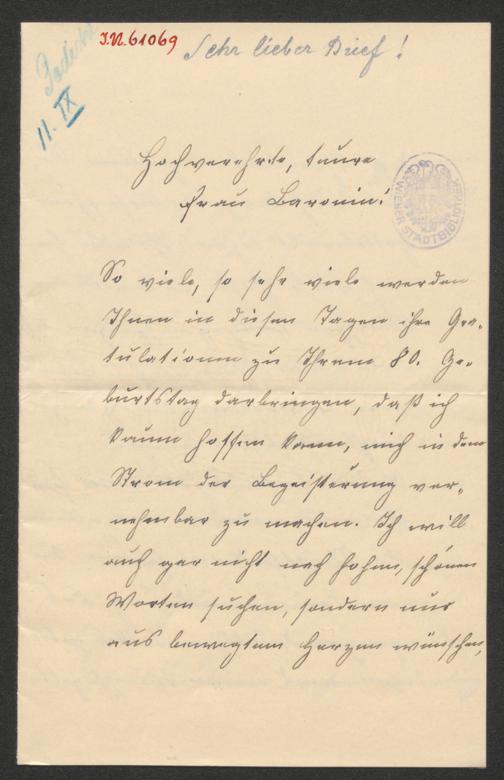 I.N. 61069
Sehr lieber Brief!
11. IX
WIENER STADTBIBLIOTHEK
Hochverehrte, teure
Frau Baronin!
So viele, so sehr viele werden
Ihnen in diesen Tagen ihre Gra-
tulationen zu Ihrem 80. Ge-
burtstag darbringen, daß ich
kaum hoffen kann, mich in dem
Strom der Begeisterung ver-
nehmbar zu machen. Ich will
auch gar nicht nach hohen, schönen
Worten suchen, sondern nur
aus bewegtem Herzen wünschen,